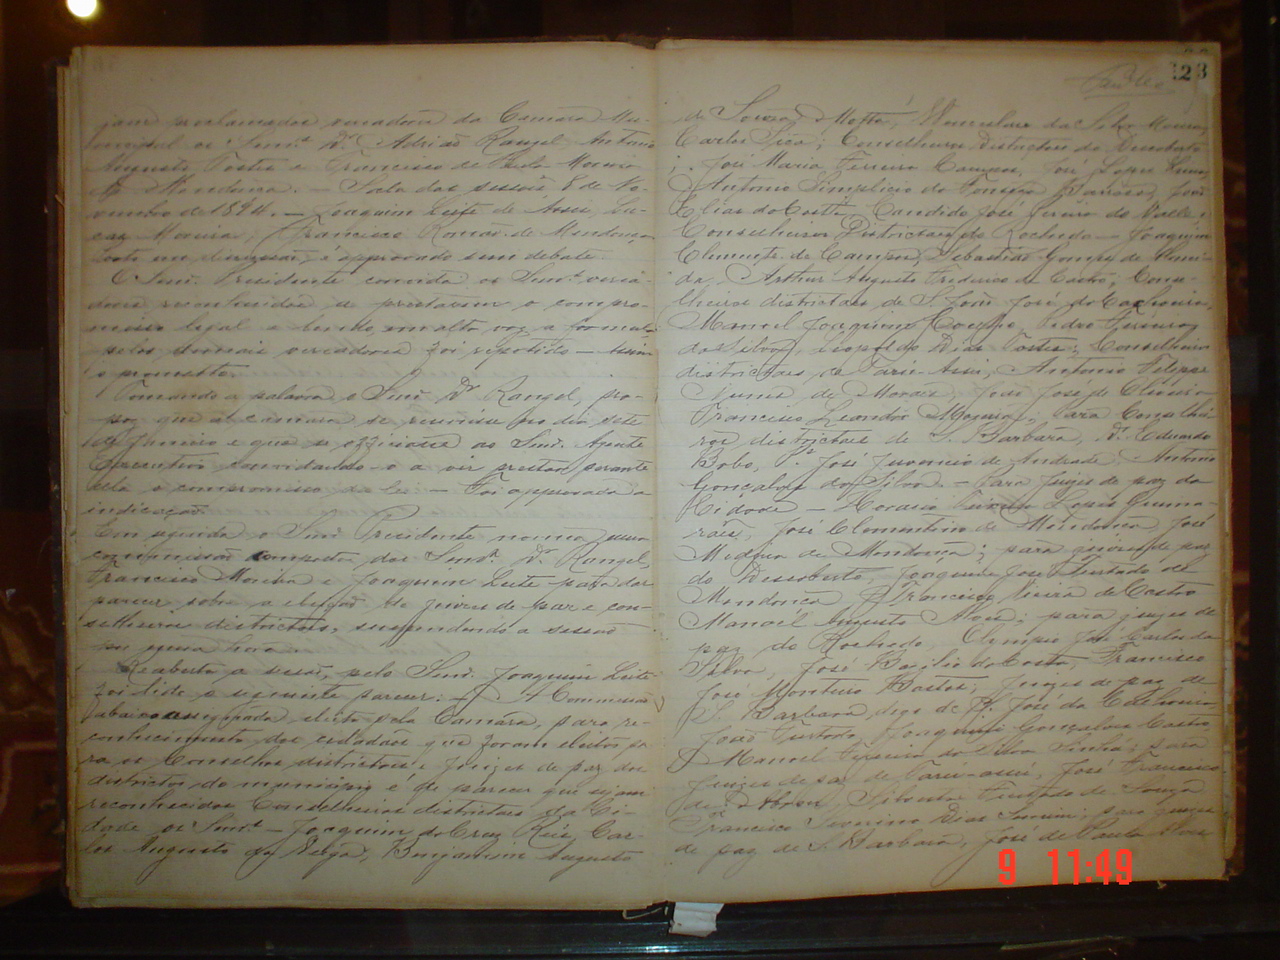 jam proclamados vereadores da Camara Mu-
nicipal os Snrs. Dr. Adrião Rangel, Antonio
Augusto Tostes e Francisco de Paula Moreira
de Mendonça. — Sala das sessões 8 de No-
vembro de 1894. — Joaquim Leite de Assis, Lu-
cas Moreira, Francisco Romão de Mendonça
posto em discussão, é approvado sem debate.
O Snr. Presidente convida os Snrs. verea-
dores reconhecidos a prestarem o compro-
misso legal e lendo em alta voz a formula
pelos demais vereadores foi repetido — Assim
o prometto.
Tomando a palavra o Snr. Dr. Rangel, pro-
poz que a camara se reunisse no dia sete
de Janeiro e que se officiasse ao Snr. Agente
Executivo convidando-o a vir prestar perante
ella o compromisso da lei — Foi approvada a
indicação.
Em seguida o Snr. Presidente nomea uma
commissão composta dos Snrs. Dr. Rangel,
Francisco Moreira e Joaquim Leite para dar
parecer sobre a eleição de juizes de paz e con-
selheiros districtaes, suspendendo a sessão
por uma hora.
Reaberta a sessão, pelo Snr. Joaquim Leite
foi lido o seguinte parecer: — A Commissão
abaixo assignada, eleita pela Camara, para re-
conhecimento dos cidadãos que foram eleitos pa-
ra os Conselhos districtaes e Juizes de paz dos
districtos do municipio é de parecer que sejam
reconhecidos Conselheiros districtaes da Ci-
dade os Snrs. — Joaquim da Cruz Reis, Car-
los Augusto da Veiga, Benjamim Augusto
123
de Souza Motta, Wenceslau da Silva
Carlos Sica; Conselheiros Districtaes do Descoberto
José Maria Ferreira Campos, José Lopes
Antonio Simplicio da Fonseca Barroso, João
Elias da Costa, Candido José Pereira do Valle;
Conselheiros Districtaes do Rochedo — Joaquim
Clemente de Campos, Sebastião Gomes de
Arthur Augusto Frederico de Castro; Conse-
lheiros districtaes de S. José do Cachoeira
Manoel Joaquim Coelho, Pedro Ferreira
da Silva, Leopoldo Dias Tostes; Conselheiros
districtaes de Taru-Assú, Antonio Felippe
Nunes de Moraes, João José de Oliveira
Francisco Leandro Moreira; Para Conselhei-
ros districtaes de S. Barbara, Dr. Eduardo
Bobo, Pe. José Juvencio de Andrade, Antonio
Gonçalves da Silva. — Para Juizes de paz da
Cidade — Horacio Lopes Guima-
rães, José Clementino de Mendonça José
Medina de Mendonça; para juizes de paz
do Descoberto, Joaquim José Furtado de
Mendonça Francisco Vieira de Castro
Manoel Augusto Alves; para juizes de
paz do Rochedo, Olympio José Carlos da
Silva, José Basilio da Costa, Francisco
José Monteiro Bastos; Juizes de paz de
S. Barbara, digo de S. José da Cachoeira
João Furtado, Joaquim Gonçalves Castro,
Manoel Ferreira da Silva Sinhá; para
Juizes de paz de Taru-assú, José Francisco
Silverio Furtado de Souza
Francisco Severino Dias; para juizes
de paz de S. Barbara, José de Paula Alves
9 11:49